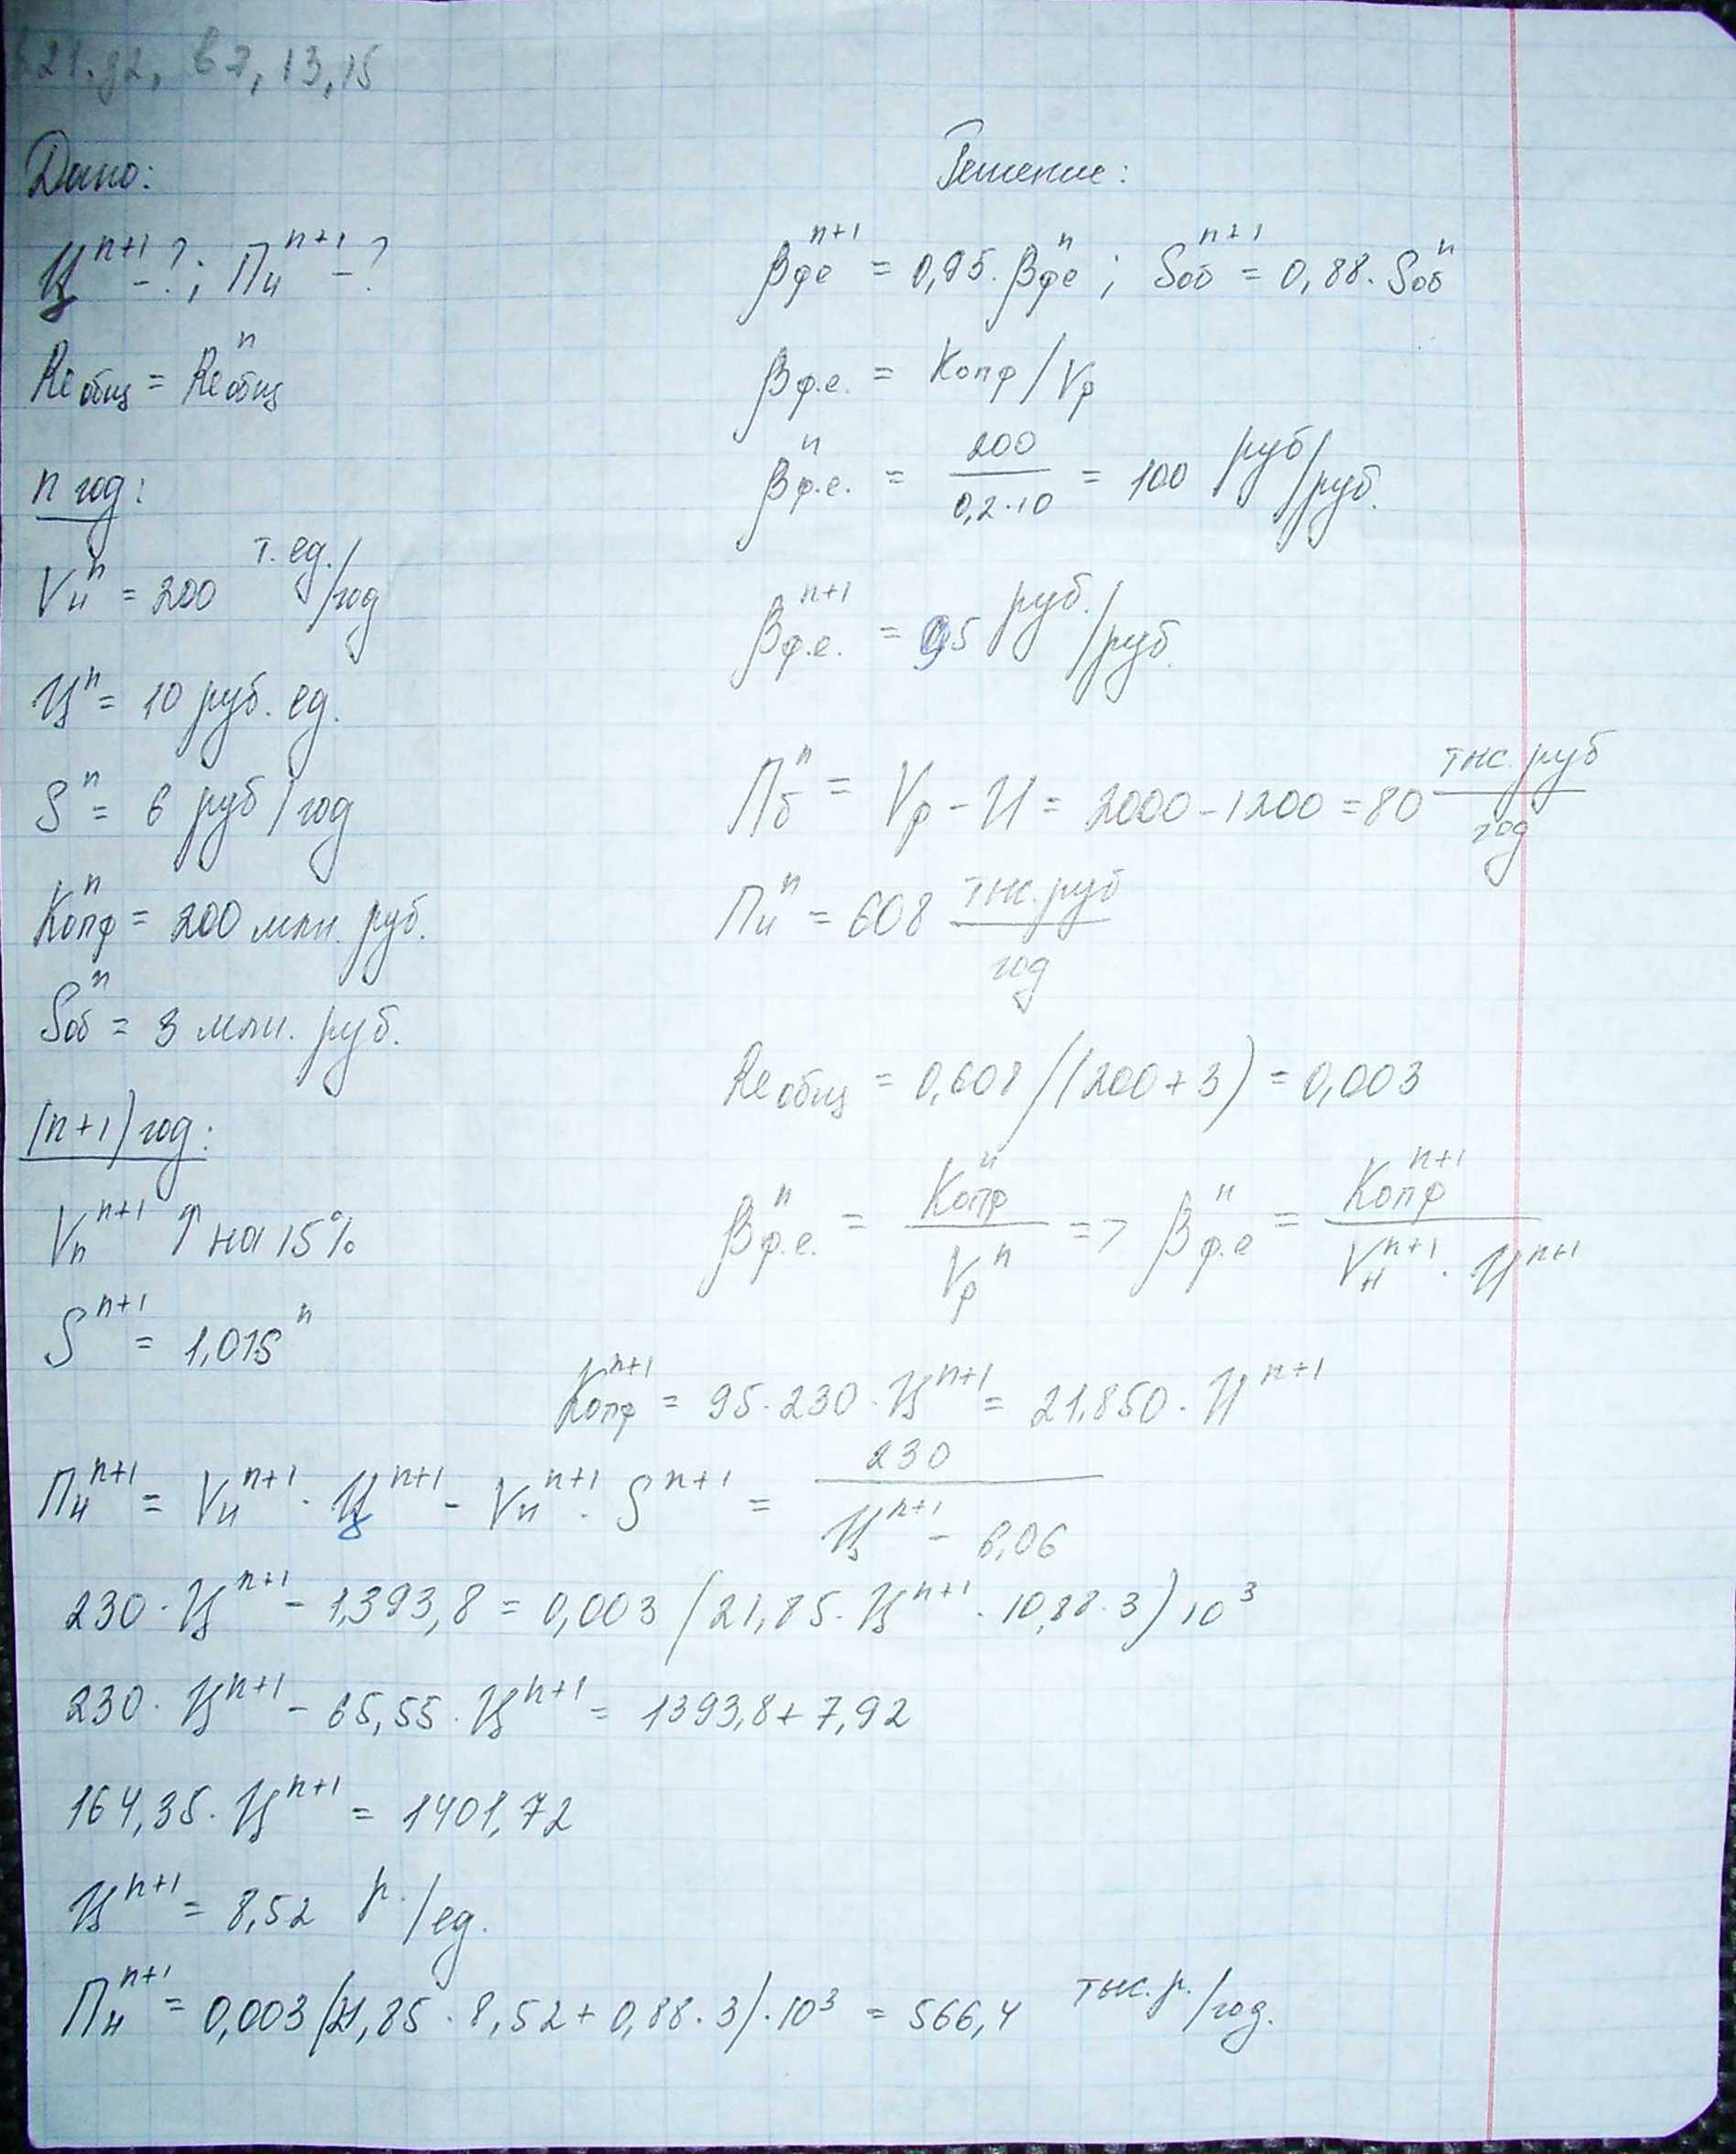 621.92, в 7, 13, 15
Дано:
Ц^{n+1} - ?; Пч^{n+1} - ?
Re общ = Re общ^n
n год:
Vн^n = 200 т. ед./год
Ц^n = 10 руб. ед.
S^n = 6 руб/год
Копф^n = 200 млн. руб.
Sоб^n = 3 млн. руб.
(n+1) год:
Vп^{n+1} ↑ на 15%
S^{n+1} = 1,01S^n
Решение:
βфе^{n+1} = 0,95 · βфе^n ; Sоб^{n+1} = 0,88 · Sоб^n
βф.е. = Копф / Vр
βф.е.^n = 200 / 0,2·10 = 100 руб/руб.
βф.е.^{n+1} = 95 руб./руб.
Пб^n = Vр - И = 2000 - 1200 = 80 тыс. руб / год
Пч^n = 608 тыс. руб / год
Re общ = 0,608 / (200 + 3) = 0,003
βф.е.^n = Копф^n / Vр^n => βф.е^n = Копф^{n+1} / Vн^{n+1} · Ц^{n+1}
Копф^{n+1} = 95 · 230 · Ц^{n+1} = 21.850 · Ц^{n+1}
Пч^{n+1} = Vн^{n+1} · Ц^{n+1} - Vн^{n+1} · S^{n+1} = 230 / Ц^{n+1} - 6,06
230 · Ц^{n+1} - 1,393,8 = 0,003 (21,85 · Ц^{n+1} · 10,88 · 3) 10^3
230 · Ц^{n+1} - 65,55 · Ц^{n+1} = 1393,8 + 7,92
164,35 · Ц^{n+1} = 1401,72
Ц^{n+1} = 8,52 р./ед.
Пн^{n+1} = 0,003 (21,85 · 8,52 + 0,88 · 3) · 10^3 = 566,4 тыс. р./год.